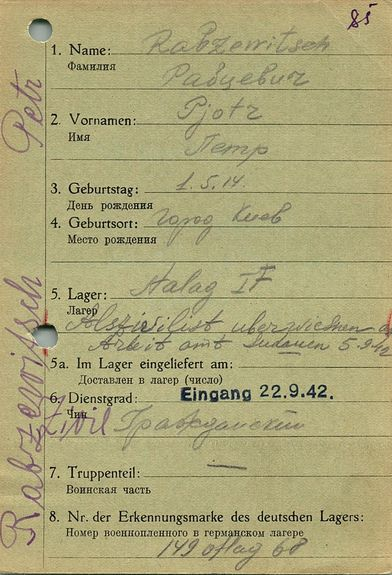 85
1. Name: Rabzewitsch
Фамилия
Рабцевич
2. Vornamen: Pjotr
Имя
Петр
3. Geburtstag: 1.5.14.
День рождения
4. Geburtsort: город Киев
Место рождения
5. Lager:
Лагер
Als Zivilist überwiesen
Arbeitsamt Sudauen 5.9.42
5a. Im Lager eingeliefert am:
Доставлен в лагер (число)
6. Dienstgrad: Eingang 22.9.42.
Чин
Zivil Гражданский
7. Truppenteil: —
Воинская часть
8. Nr. der Erkennungsmarke des deutschen Lagers:
Номер военнопленного в германском лагере
149 oflag 68
Rabzewitsch Petr